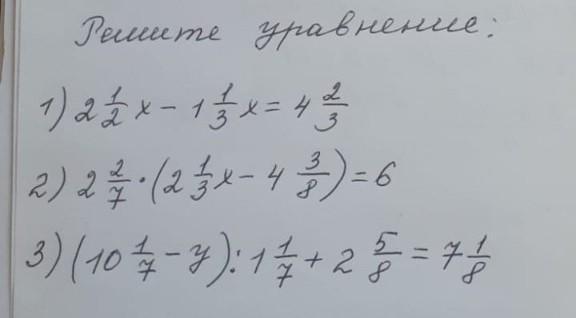 Решите уравнение:
1) 2 1/2 x - 1 1/3 x = 4 2/3
2) 2 2/7 · (2 1/3 x - 4 3/8) = 6
3) (10 1/7 - y) : 1 1/7 + 2 5/8 = 7 1/8